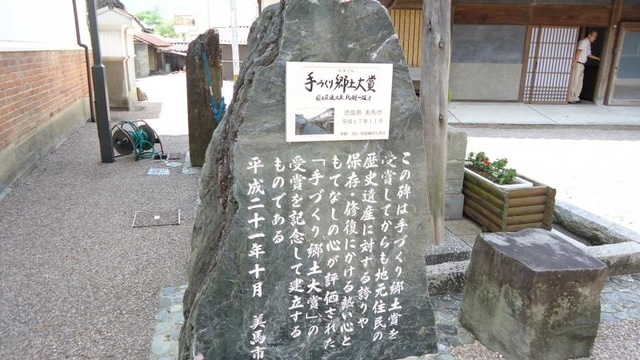 手づくり郷土大賞
徳島県 美馬市
平成17年11月
この碑は手づくり郷土賞を
受賞してからも地元住民の
歴史遺産に対する誇りや
保存・修復にかける熱い心と
もてなしの心が評価された
「手づくり郷土大賞」の
受賞を記念して建立する
ものである
平成二十一年十月 美馬市